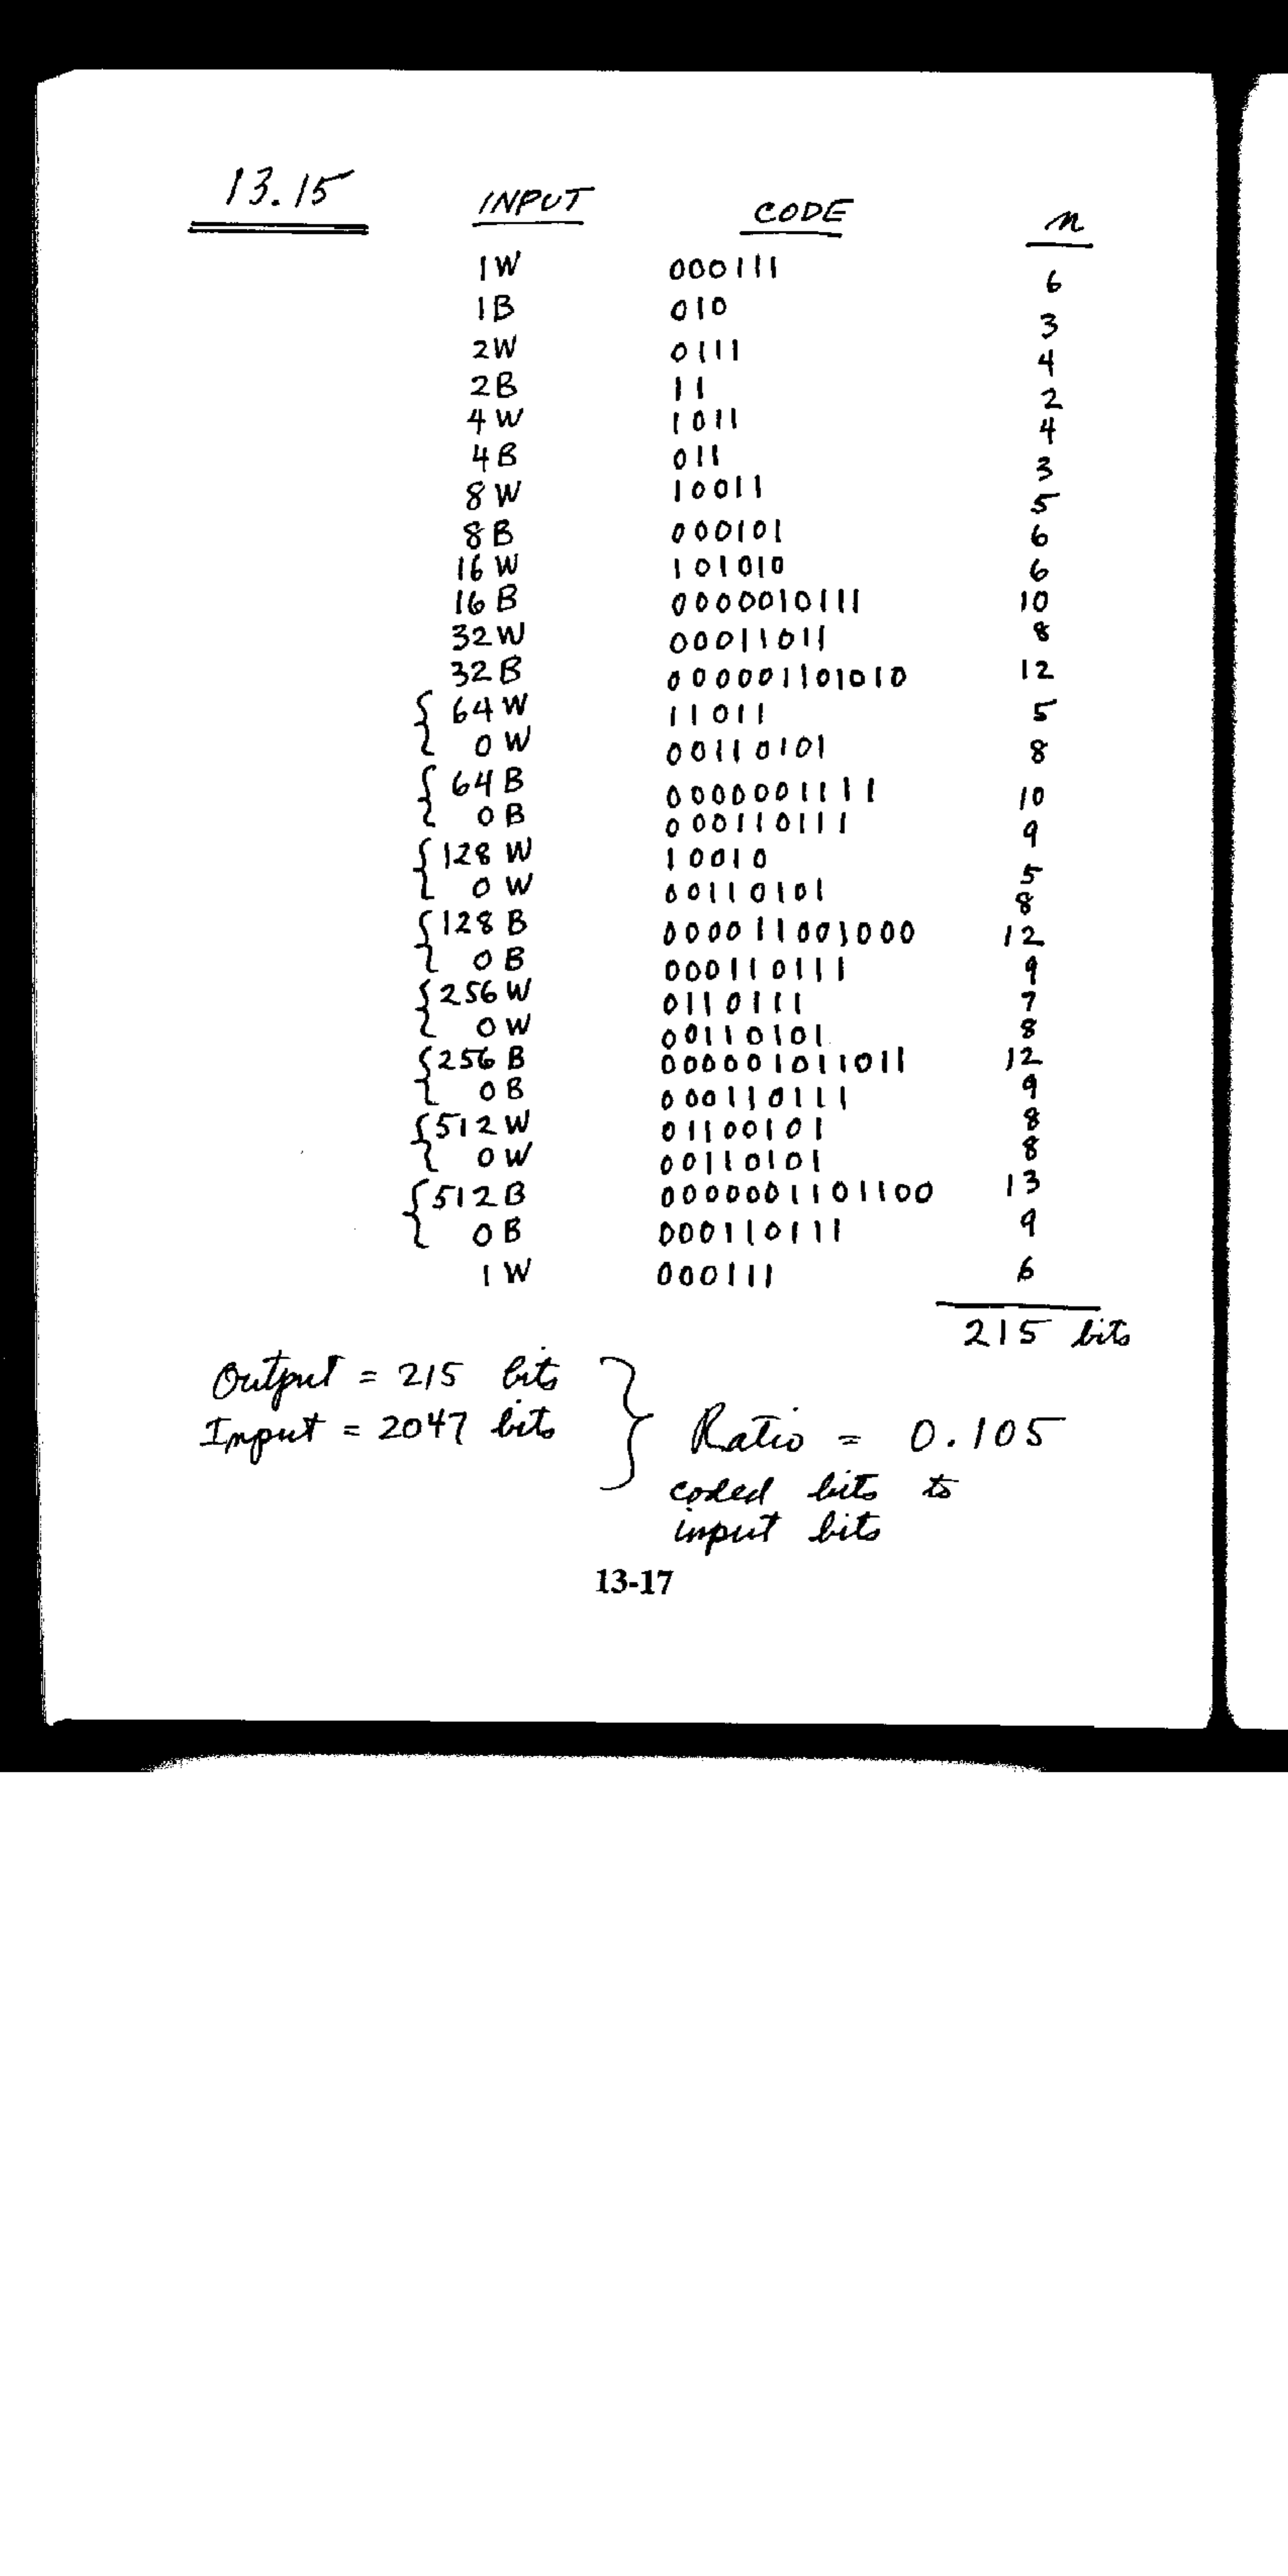 13.15 INPUT CODE n
1W 000111 6
1B 010 3
2W 0111 4
2B 11 2
4W 1011 4
4B 011 3
8W 10011 5
8B 000101 6
16W 101010 6
16B 0000010111 10
32W 00011011 8
32B 000001101010 12
{ 64W 11011 5
0W 00110101 8
{ 64B 0000001111 10
0B 000110111 9
{ 128W 10010 5
0W 00110101 8
{ 128B 000011001000 12
0B 000110111 9
{ 256W 0110111 7
0W 00110101 8
{ 256B 000001011011 12
0B 000110111 9
{ 512W 01100101 8
0W 00110101 8
{ 512B 0000001101100 13
0B 000110111 9
1W 000111 6
215 bits
Output = 215 bits
Input = 2047 bits } Ratio = 0.105
coded bits to
input bits
13-17